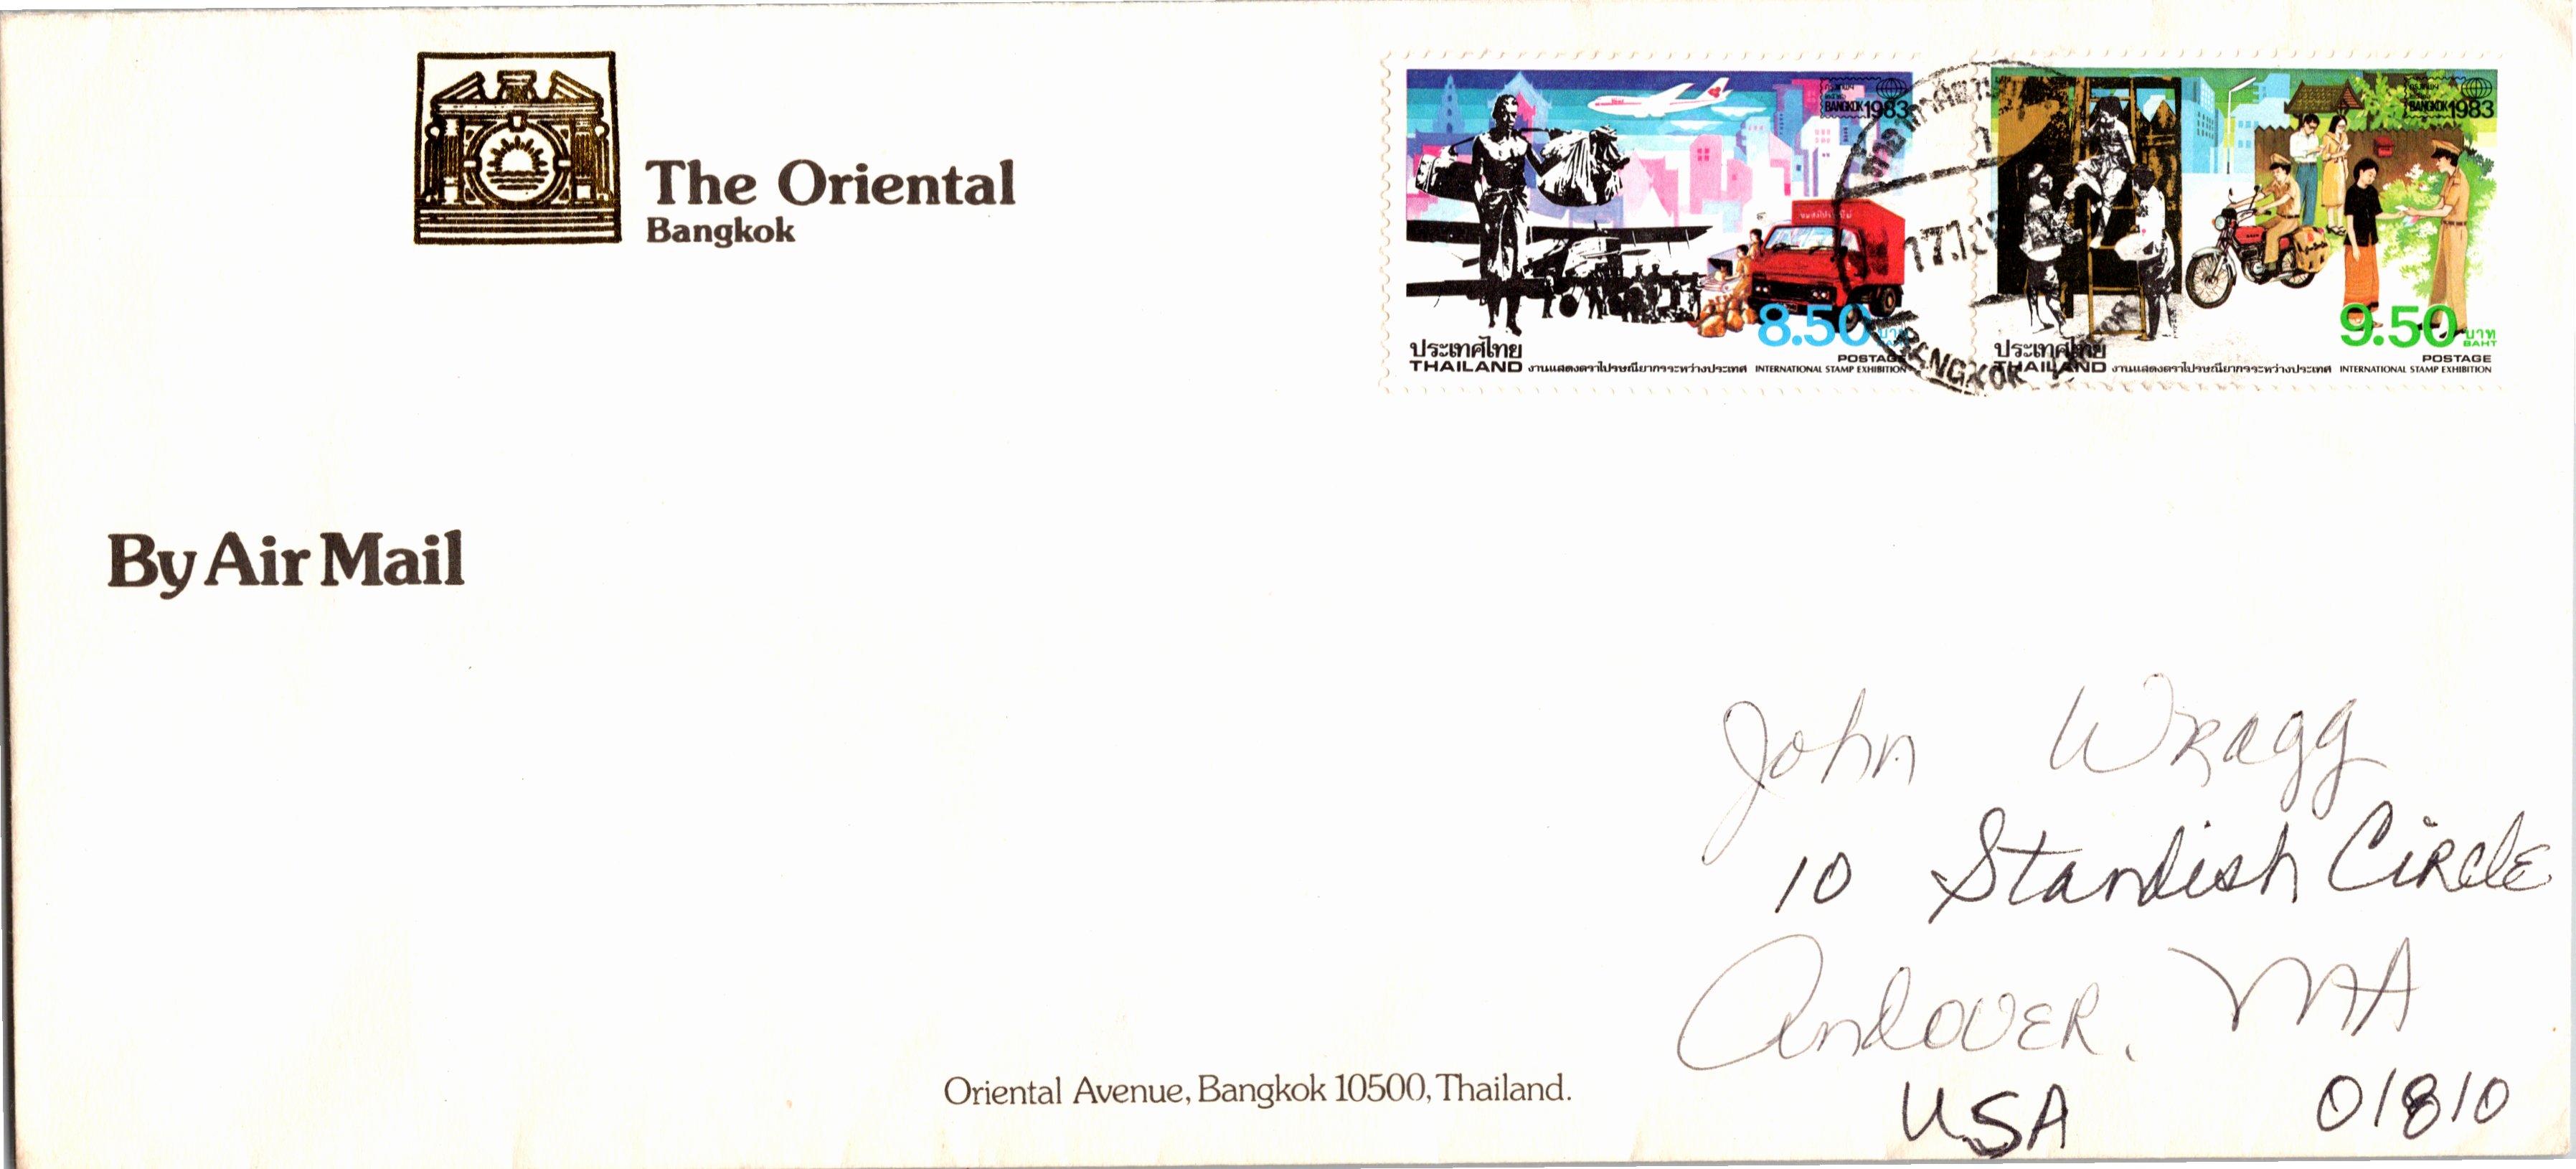 The Oriental
Bangkok
BANGKOK 1983
8.50 บาท
POSTAGE
ประเทศไทย
THAILAND งานแสดงตราไปรษณียากรระหว่างประเทศ INTERNATIONAL STAMP EXHIBITION
BANGKOK 1983
9.50 บาท
BAHT
POSTAGE
ประเทศไทย
THAILAND งานแสดงตราไปรษณียากรระหว่างประเทศ INTERNATIONAL STAMP EXHIBITION
BANGKOK
By Air Mail
John Wragg
10 Standish Circle
Andover, MA
USA 01810
Oriental Avenue, Bangkok 10500, Thailand.